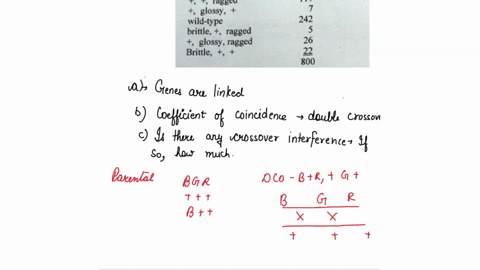 +, +, ragged
+, glossy, + 7
wild-type 242
brittle, +, ragged 5
+, glossy, ragged 26
Brittle, +, + 22
800
a)→ Genes are linked
b) Coefficient of coincidence → double crosson
c) Is there any crossover interference → If
so, how much.
Parental B G R DCO - B+R, + G +
+ + + B G R
B + + X X
+ + +